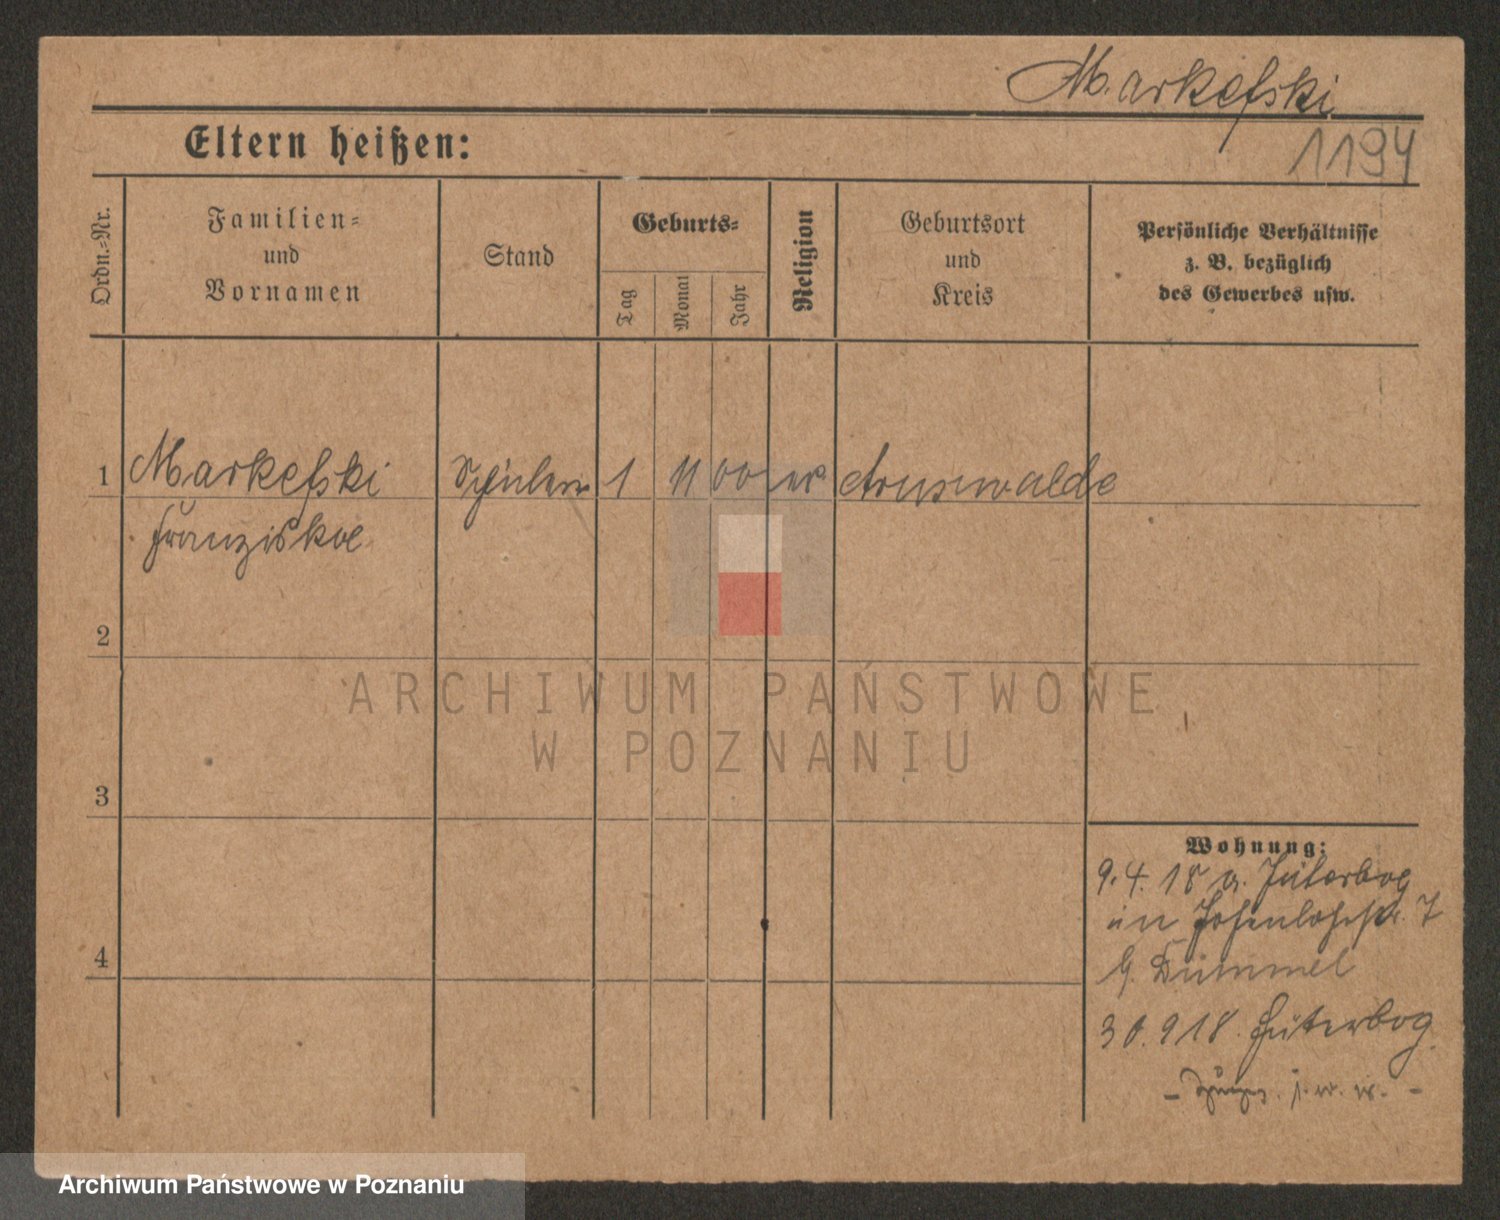 Markefski
1194
Eltern heißen:
Ordn.-Nr.
Familien-
und
Vornamen
Stand
Geburts-
Tag
Monat
Jahr
Religion
Geburtsort
und
Kreis
Persönliche Verhältnisse
z. B. bezüglich
des Gewerbes usw.
1 Markefski Schülerin 1 11 00 ev Arnswalde
Franziska
2
3
4
Wohnung:
9.4.18 a. Jüterbog
in Hohenlohestr. 7
b. Dümmel
30.9.18. Jüterbog.
ARCHIWUM PAŃSTWOWE
W POZNANIU
Archiwum Państwowe w Poznaniu